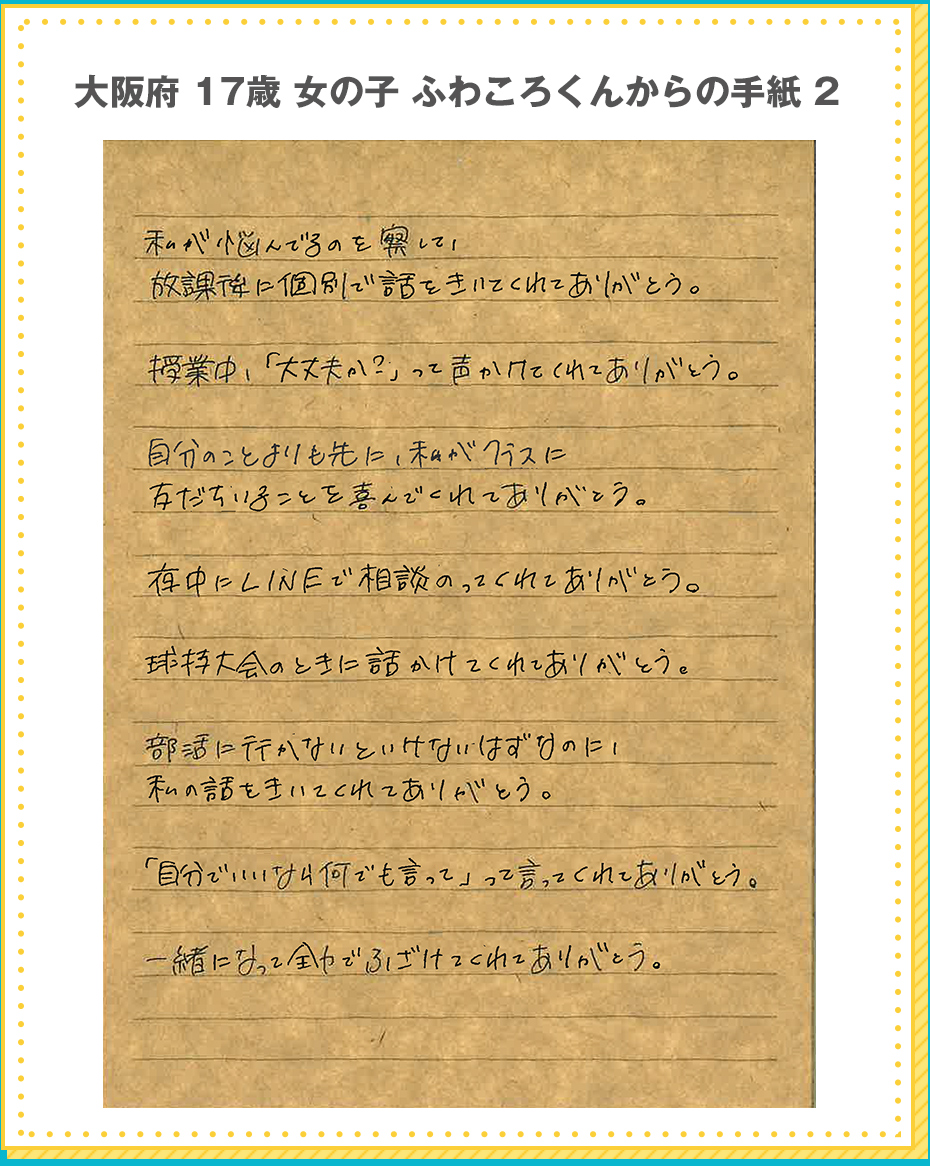 大阪府 17歳 女の子 ふわころくんからの手紙 2
私が悩んでるのを察して、
放課後に個別で話をきいてくれてありがとう。
授業中、「大丈夫か?」って声かけてくれてありがとう。
自分のことよりも先に、私がクラスに
友だちいることを喜んでくれてありがとう。
夜中にLINEで相談のってくれてありがとう。
球技大会のときに話かけてくれてありがとう。
部活に行かないといけないはずなのに、
私の話をきいてくれてありがとう。
「自分でいいなら何でも言って」って言ってくれてありがとう。
一緒になって全力でふざけてくれてありがとう。